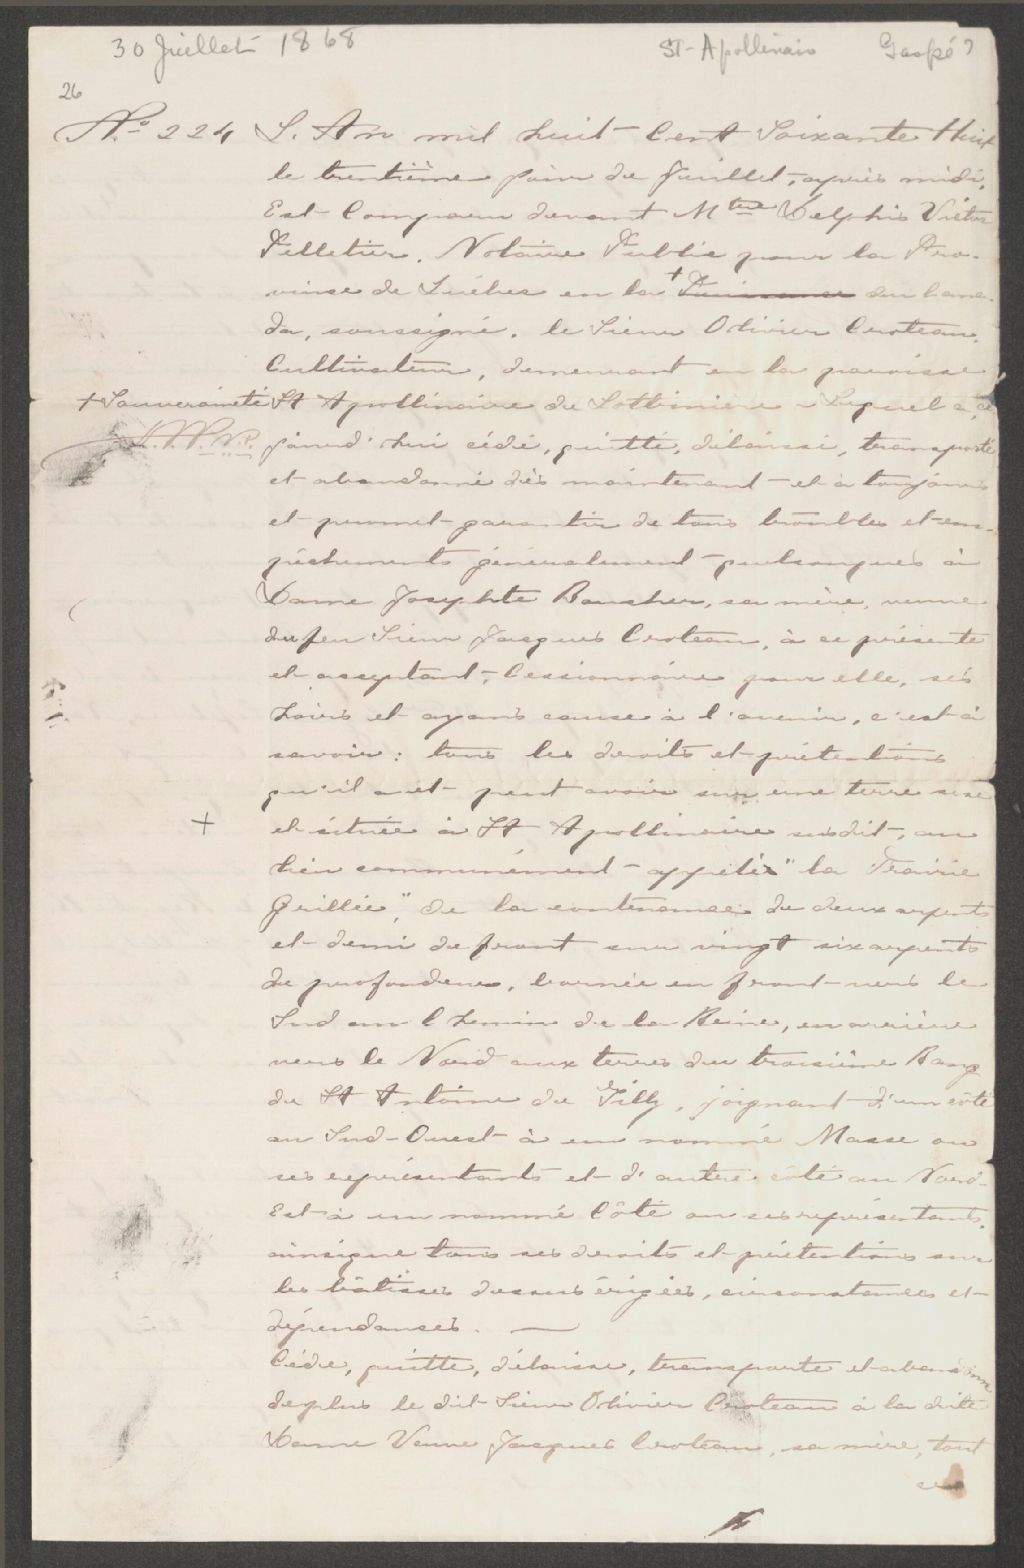 30 Juillet 1868 St-Apollinaire Gaspé ?
26
No. 224 L'An mil huit Cent Soixante Huit
le trentième jour de Juillet, après midi,
Est Comparu devant Mtre Delphis Victor
Pelletier, Notaire Public pour la Pro-
vince de Québec en la + Puissance du Cana-
da, soussigné, le Sieur Olivier Croteau,
Cultivateur, demeurant en la paroisse
+ Souveraineté St Apollinaire de Lotbinière - Lequel a, ce
jourd'hui cédé, quitté, délaissé, transporté
et abandonné dès maintenant et à toujours
et promet garantir de tous troubles et em-
pêchements généralement quelconques à
Dame Josephte Boucher, sa mère, veuve
du feu Sieur Jacques Croteau, à ce présente
et acceptant, Cessionnaire pour elle, ses
hoirs et ayans cause à l'avenir, c'est à
savoir : tous les droits et prétentions
qu'il a et peut avoir sur une terre sise
+ et située à St Apollinaire susdit, au
lieu communément appelé "la Prairie
Grillée", de la contenance de deux arpents
et demi de front sur vingt six arpents
de profondeur, bornée en front vers le
Sud au Chemin de la Reine, en arrière
vers le Nord aux terres du troisième Rang
de St Antoine de Tilly, joignant d'un côté
au Sud-Ouest à un nommé Masse ou
ses représentants et d'autre côté au Nord-
Est à un nommé Côté ou ses représentants,
ainsique tous ses droits et prétentions sur
les bâtisses dessus érigées, circonstances et
dépendances. —
Cède, quitte, délaisse, transporte et abandonne
de plus le dit Sieur Olivier Croteau à la dite
Dame Veuve Jacques Croteau, sa mère, tout